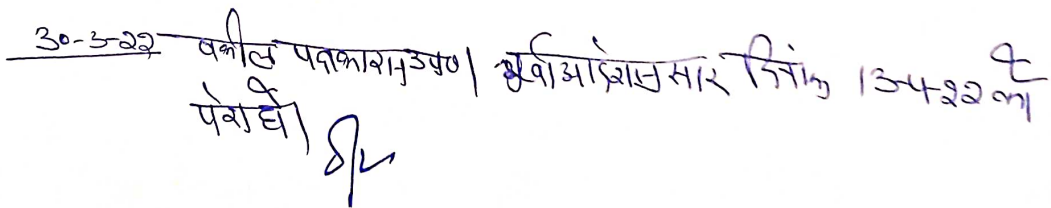 30-3-22 वकील पक्षकारान उप0। पूर्व आदेशानुसार दिनांक 13-4-22 को
पेश हो।